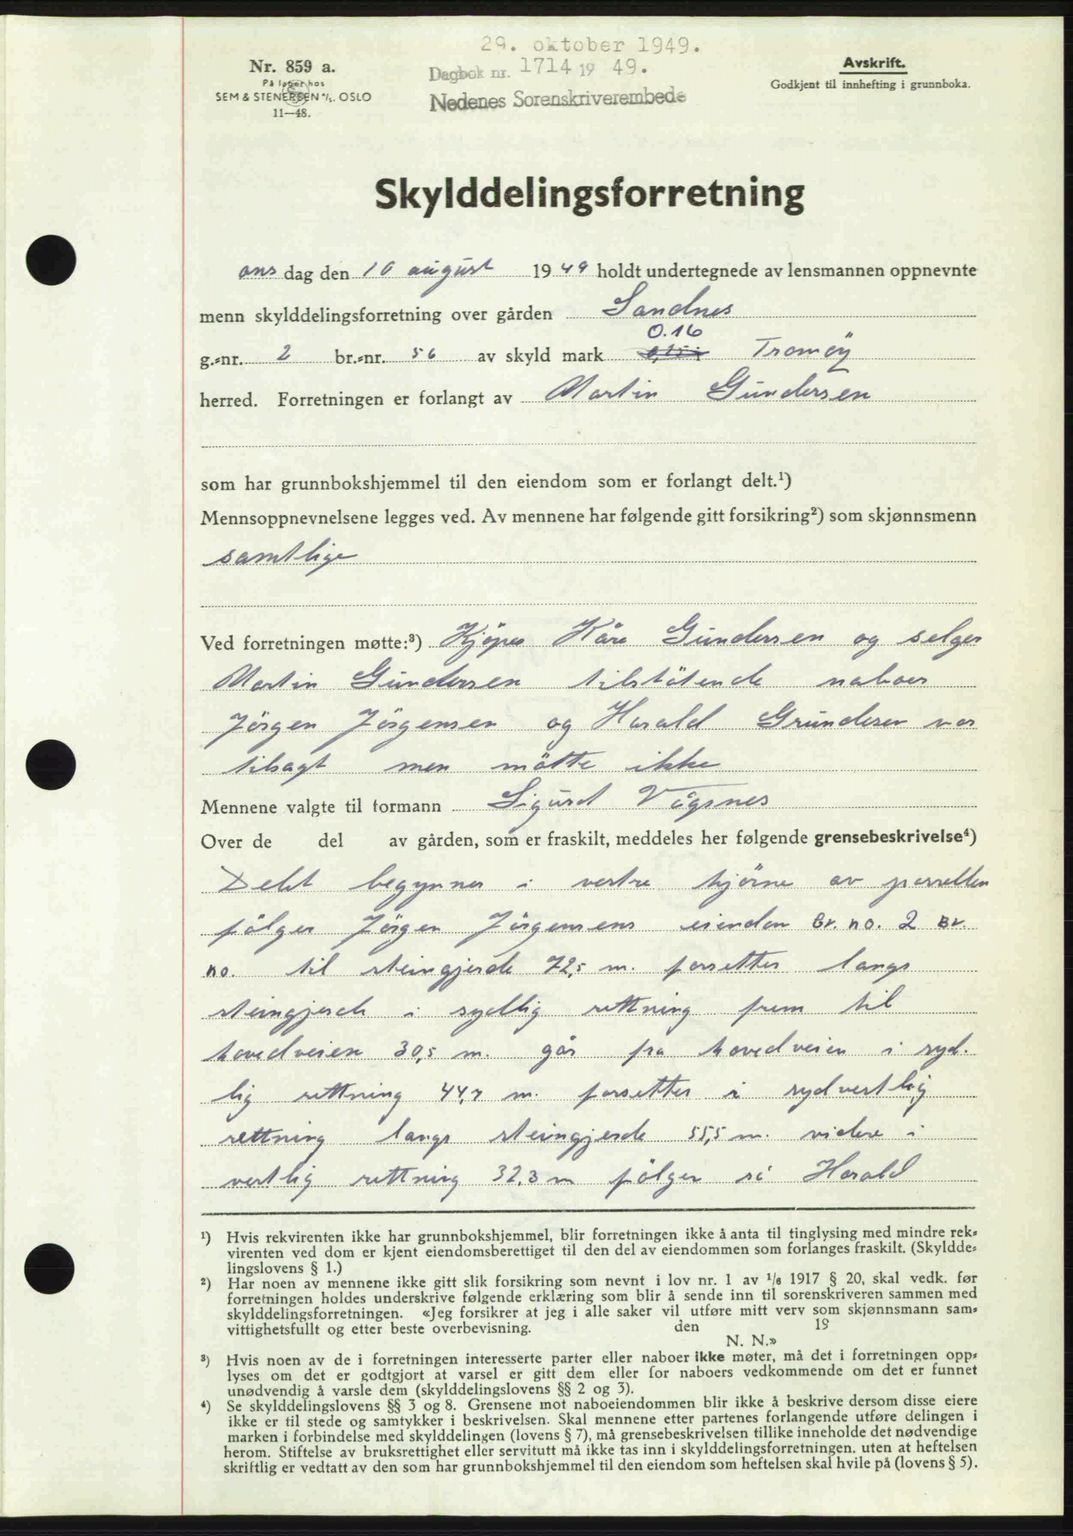 29. oktober 1949.
Nr. 859 a.
På lager hos
SEM & STENERSEN A/S. OSLO
11—48.
Dagbok nr. 1714 19 49.
Nedenes Sorenskriverembede
Avskrift.
Godkjent til innhefting i grunnboka.
Skylddelingsforretning
ons dag den 10 august 19 49 holdt undertegnede av lensmannen oppnevnte
menn skylddelingsforretning over gården Sandnes
0.16
g.-nr. 2 br.-nr. 56 av skyld mark Tromöy
herred. Forretningen er forlangt av Martin Gundersen
som har grunnbokshjemmel til den eiendom som er forlangt delt.¹)
Mennsoppnevnelsene legges ved. Av mennene har følgende gitt forsikring²) som skjønnsmenn
samtlige
Ved forretningen møtte:³) Kjöper Kåre Gundersen og selger
Martin Gundersen tilstötende naboer
Jörgen Jörgensen og Harald Grundesen var
tilsagt men mötte ikke
Mennene valgte til formann Sigurd Vågsnes
Over de del av gården, som er fraskilt, meddeles her følgende grensebeskrivelse⁴)
Delet begynner i vestre hjörne av parsellen
fölger Jörgen Jörgensens eiendom Br. no. 2 Br.
no. til steingjerde 72,5 m. forsetter langs
steingjerde i sydlig rettning frem til
hovedveien 30,5 m. går fra hovedveien i syd.
lig rettning 44,7 m. forsetter i sydvestlig
rettning langs steingjerde 55,5 m. videre i
vestlig rettning 32,3 m fölger så Harald
¹) Hvis rekvirenten ikke har grunnbokshjemmel, blir forretningen ikke å anta til tinglysing med mindre rek-
virenten ved dom er kjent eiendomsberettiget til den del av eiendommen som forlanges fraskilt. (Skyldde-
lingslovens § 1.)
²) Har noen av mennene ikke gitt slik forsikring som nevnt i lov nr. 1 av 1/6 1917 § 20, skal vedk. før
forretningen holdes underskrive følgende erklæring som blir å sende inn til sorenskriveren sammen med
skylddelingsforretningen. «Jeg forsikrer at jeg i alle saker vil utføre mitt verv som skjønnsmann sam-
vittighetsfullt og etter beste overbevisning. den 19
N. N.»
³) Hvis noen av de i forretningen interesserte parter eller naboer ikke møter, må det i forretningen opp-
lyses om det er godtgjort at varsel er gitt dem eller for naboers vedkommende om det er funnet
unødvendig å varsle dem (skylddelingslovens §§ 2 og 3).
⁴) Se skylddelingslovens §§ 3 og 8. Grensene mot naboeiendommen blir ikke å beskrive dersom disse eiere
ikke er til stede og samtykker i beskrivelsen. Skal mennene etter partenes forlangende utføre delingen i
marken i forbindelse med skylddelingen (lovens § 7), må grensebeskrivelsen tillike inneholde det nødvendige
herom. Stiftelse av bruksrettighet eller servitutt må ikke tas inn i skylddelingsforretningen, uten at heftelsen
skriftlig er vedtatt av den som har grunnbokshjemmel til den eiendom som heftelsen skal hvile på (lovens § 5).